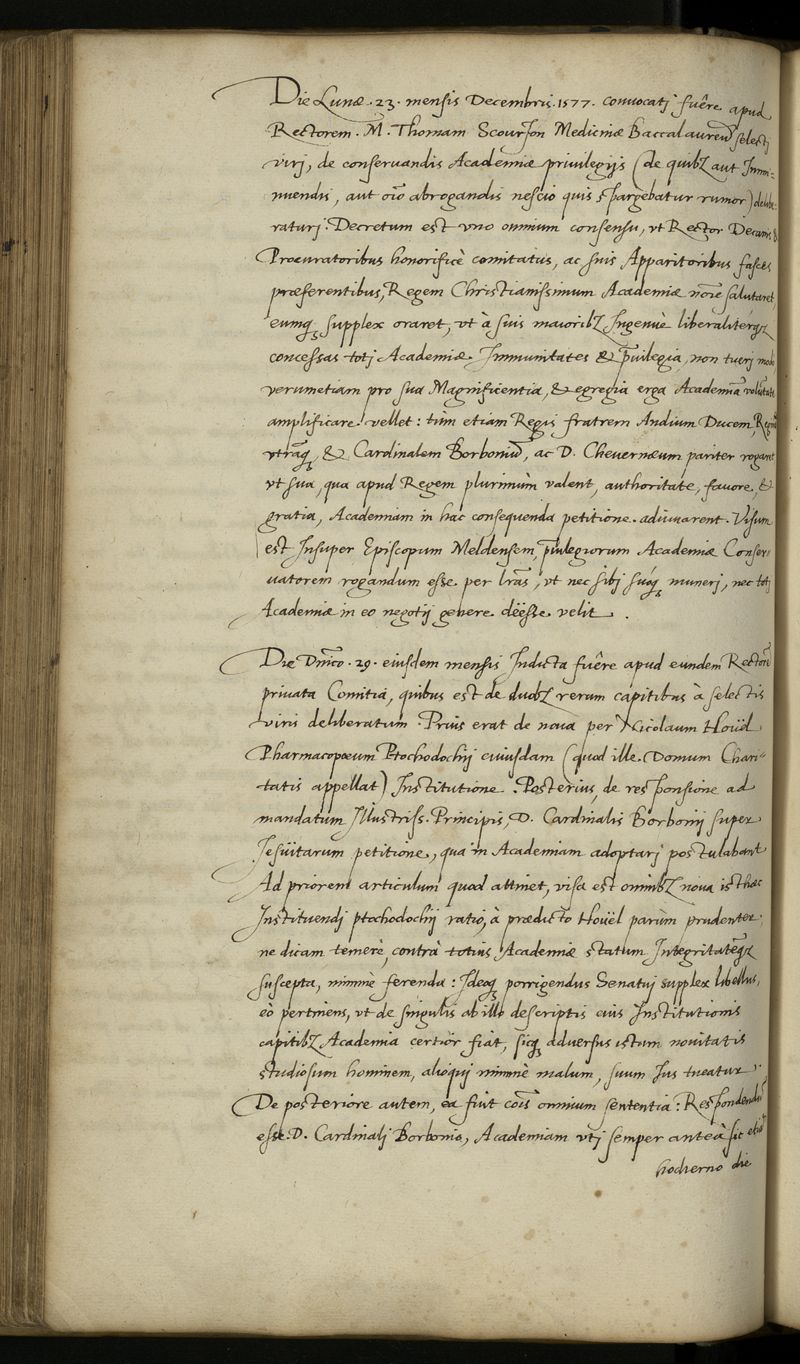 Die Lunæ . 23 . mensis Decembris . 1577 . conuocatj fuêre apud
Rectorem . M . Thomam Scourjon Medicinæ Baccalaureū selectj
virj, de conseruandis Academiæ priuilegijs (de quibꝫ aut Immi-
nuendis, aut oīo abrogandis nescio quis spargebatur rumor) delibe-
raturj . Decretum est vno omnium consensu, vt Rector Decanis &
Procuratoribus honorificè comitatus, ac suis Apparitoribus fasces
præferentibus, Regem Christianissimum Academiæ nōīe salutaret,
eumqꝫ supplex oraret, vt à suis maioribꝫ Ingenuè liberalitérqꝫ
concessas totj Academiæ Immunitates & p̄uilegia, non tuerj modo
verumetiam pro sua Magnificentia, & egregia erga Academiā volūtate
amplificare vellet : tùm etiam Regis fratrem Andium Ducem, Reginā
vtrāqꝫ, & Cardinalem Borboniū, ac D. Cheuernæum pariter rogaret
vt sua, qua apud Regem plurimùm valent, authoritate, fauore, &
gratia, Academiam in hac consequenda petitione adiuuarent . Visum
est Insuper Episcopum Meldensem, p̄uilegiorum Academiæ Conser-
uatorem rogandum esse per lr̄as, vt nec sibj suóqꝫ munerj, nec totj
Academiæ in eo negotij genere dëesse velit .
Die Dn̄ico . 29 . eiusdem mensis Indicta fuêre apud eundem Rectorē
priuata Comitia, quibus est de duobꝫ rerum capitibus à selectis
viris deliberatum . Prius erat de noua per Nicolaum Hoüel
Pharmacopœum Ptochodochij cuiusdam (quod ille Domum Chari-
tatis appellat) Institutione . Posterius, de responsione ad
mandatum Illustriss . Principis, D. Cardinalis Borbonij super
Jesüitarum petitione, qua in Academiam adoptarj postulabant
Ad priorem articulum quod attinet, visa est omnibꝫ noua isthæc
Instituendj ptochodochij ratio, à prædicto Hoüel parùm prudenter,
ne dicam temerè, contrà totius Academiæ statum Integritatémqꝫ
suscepta, minimè ferenda : Ideoqꝫ porrigendus Senatuj supplex libellus,
eò pertinens, vt de singulis ab illo descriptis eius Institutionis
capitibꝫ Academia certior fiat, sicqꝫ aduersus istum nouitatis
studiosum hominem, alioquj minimè malum, suum Jus tueatur .
De posteriore autem, ea fuit cōis omnium sententia : Respondendū
esse D. Cardinalj Borbonio, Academiam vtj semper anteà, sic etiā
hodierno die